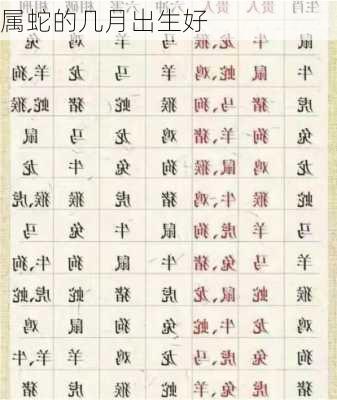 属蛇的几月出生好
生肖 贵人 贵人 六冲 六害 相破 相刑
鼠 牛 龙、猴 马 羊 鸡 兔
牛 鼠 蛇、鸡 羊 马 龙 狗、羊
虎 猪 马、狗 猴 蛇 猪 蛇、猴
兔 狗 羊、猪 鸡 龙 马 鼠
龙 鸡 鼠、猴 狗 兔 牛 龙
蛇 猴 牛、鸡 猪 虎 猴 虎、猴
马 羊 虎、狗 鼠 牛 兔 马
羊 马 兔、猪 牛 鼠 狗 狗、牛
猴 蛇 鼠、龙 虎 猪 蛇 蛇、虎
鸡 龙 牛、蛇 兔 狗 鼠 鸡
狗 兔 虎、马 龙 鸡 羊 羊、牛
猪 虎 兔、羊 蛇 猴 虎 猪